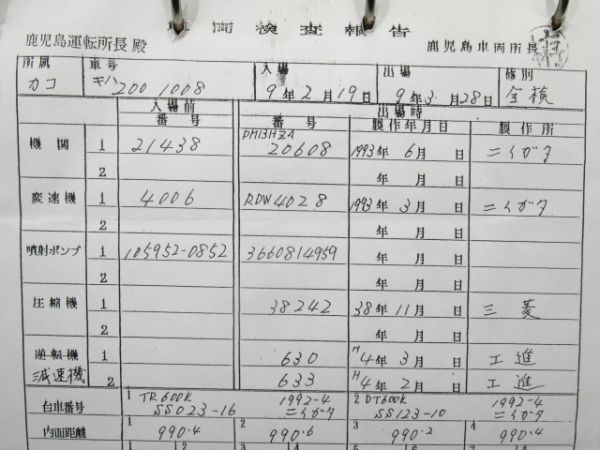 車両検査報告
鹿児島運転所長殿 鹿児島車両所長
所属 車号 入場 出場 修別
カコ キハ 200 1008 9年2月19日 9年3月28日 全検
入場前 出場時
番号 番号 製作年月日 製作所
機関 1 21438 DMI3HZA 20608 1993年6月 日 ニイガタ
2 年 月 日
変速機 1 4006 RDW4028 1993年3月 日 ニイガタ
2 年 月 日
噴射ポンプ 1 105952-0852 3660814959 年 月 日
2 年 月 日
圧縮機 1 38242 38年11月 日 三菱
2 年 月 日
逆転機 1 630 H4年3月 日 工進
減速機 2 633 H4年2月 日 工進
台車番号 1 TR600K 1992-4 2 DT600K 1992-4
SS023-16 ニイガタ SS123-10 ニイガタ
内面距離 1 990.4 2 990.6 3 990.2 4 990.4
1 2 3